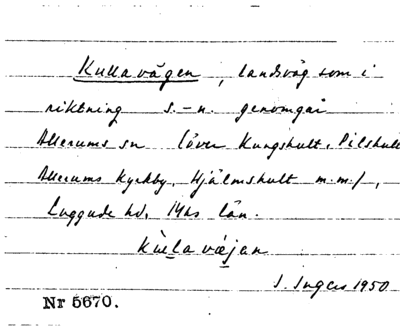 Kullavägen, landsväg som i
riktning s.-n. genomgår
Allerums sn (över Kungshult, Pilshult
Allerums kyrkby, Hjälmshult m.m.),
Luggude hd, Mhs län.
J. Ingers 1950
Nr 5670.